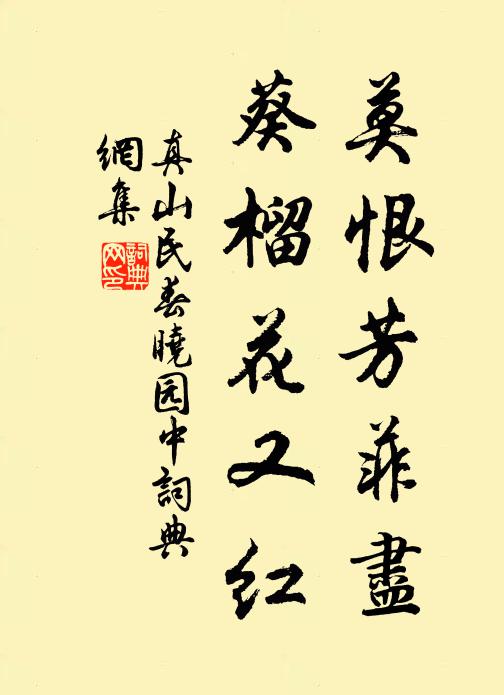 莫恨芳菲盡
葵榴花又红
真山民春曉园中詞典
網集
詞典
网印